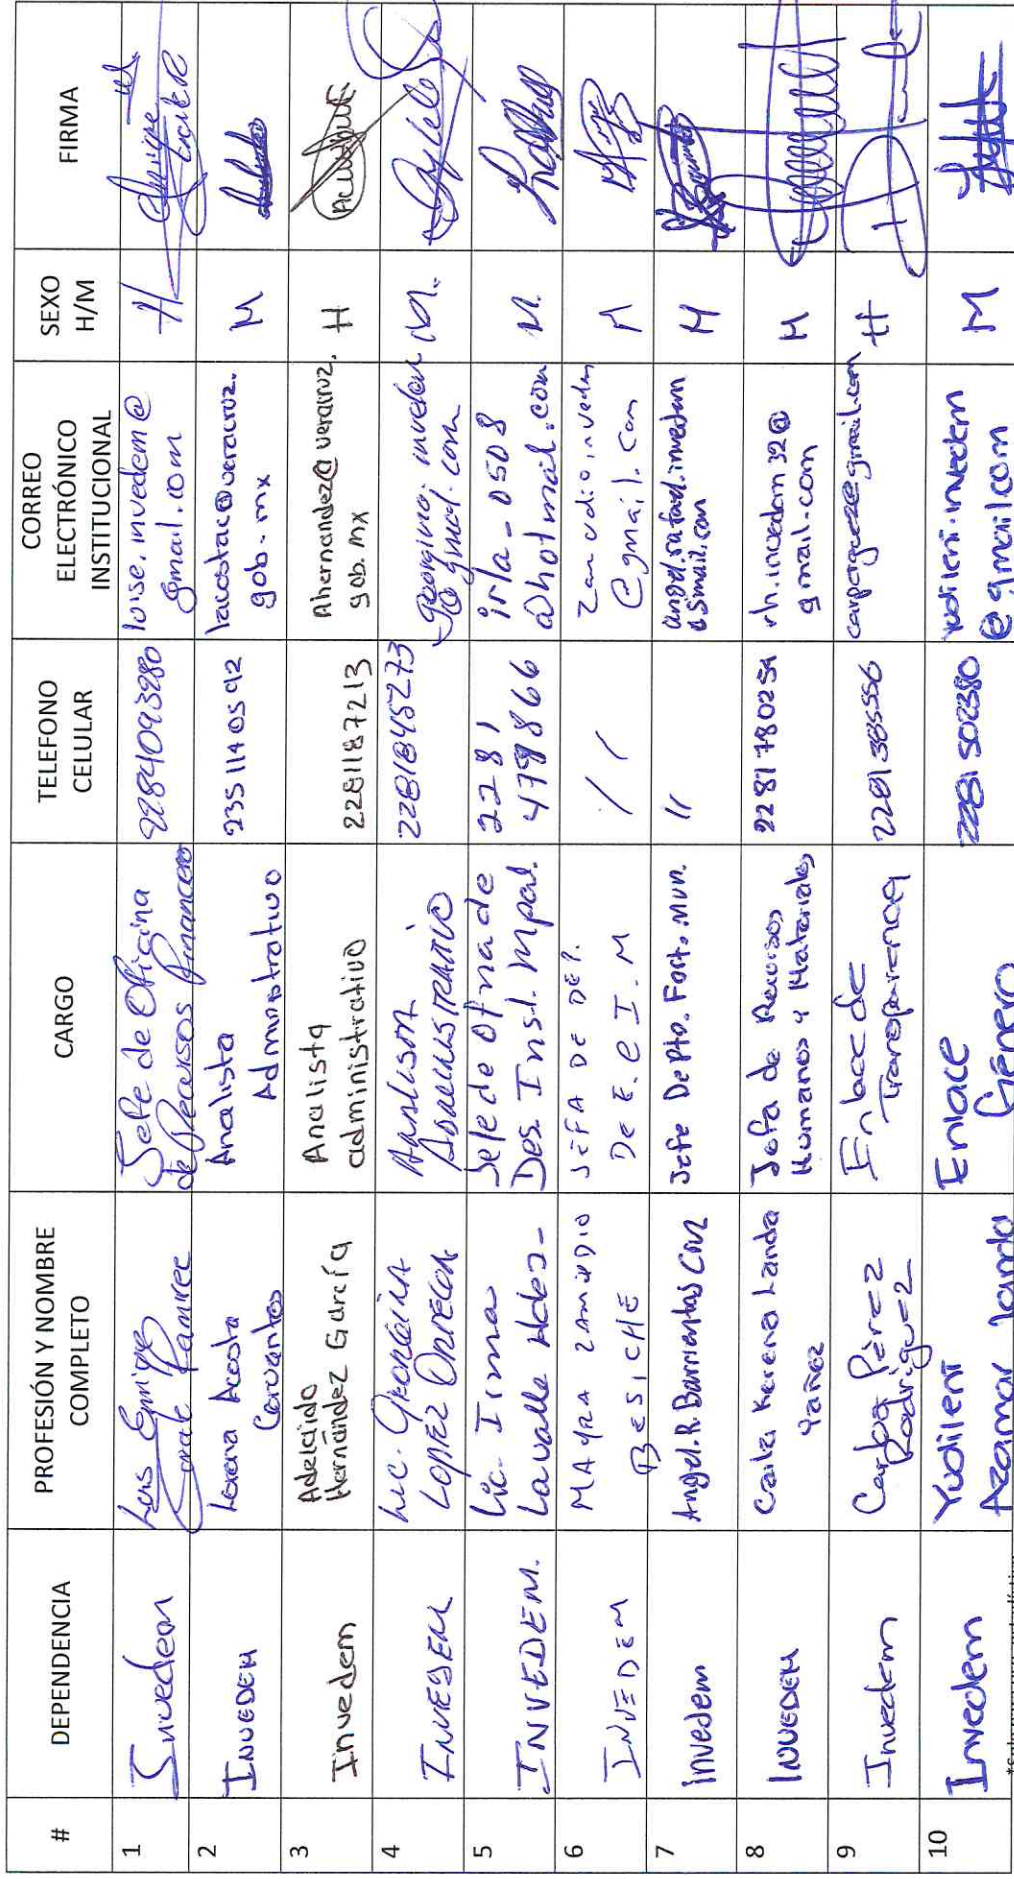 # DEPENDENCIA PROFESIÓN Y NOMBRE COMPLETO CARGO TELEFONO CELULAR CORREO ELECTRÓNICO INSTITUCIONAL SEXO H/M FIRMA
1 Invedem Luis Enrique Ramirez Jefe de Oficina de Recursos Financieros 2284093280 luise.invedem@gmail.com H
2 INVEDEM Lorena Acosta Cervantes Analista Administrativo 2351140592 lacostac@veracruz.gob.mx M
3 Invedem Adelaido Hernández García Analista administrativo 2281187213 Ahernandez@veracruz.gob.mx H
4 INVEDEM Lic. Georgina Lopez Obregon Analista Administrativo 2281845273 georgina.invedem@gmail.com M.
5 INVEDEM. Lic. Irma Lavalle Hdez- Jefe de Ofna de Des. Inst. Mpal. 2281 479866 irla-0508@hotmail.com M.
6 INVEDEM MAYRA ZAMUDIO BESICHE JEFA DE DEP. DE E. e I. M // zamudio.invedem@gmail.com M
7 invedem Angel. R. Barrientos Cruz Jefe Depto. Fort. Mun. // angel.rafael.invedem@gmail.com H
8 INVEDEM Carla Karena Landa Yañez Jefa de Recursos Humanos y Materiales 2281780254 rh.invedem32@gmail.com M
9 Invedem Carlos Pérez Rodríguez Enlace de Transparencia 2281385556 carperguez2@gmail.com H
10 Invedem Yudileni Azamar Landa Enlace Género 2281502380 yudileni.invedem@gmail.com M